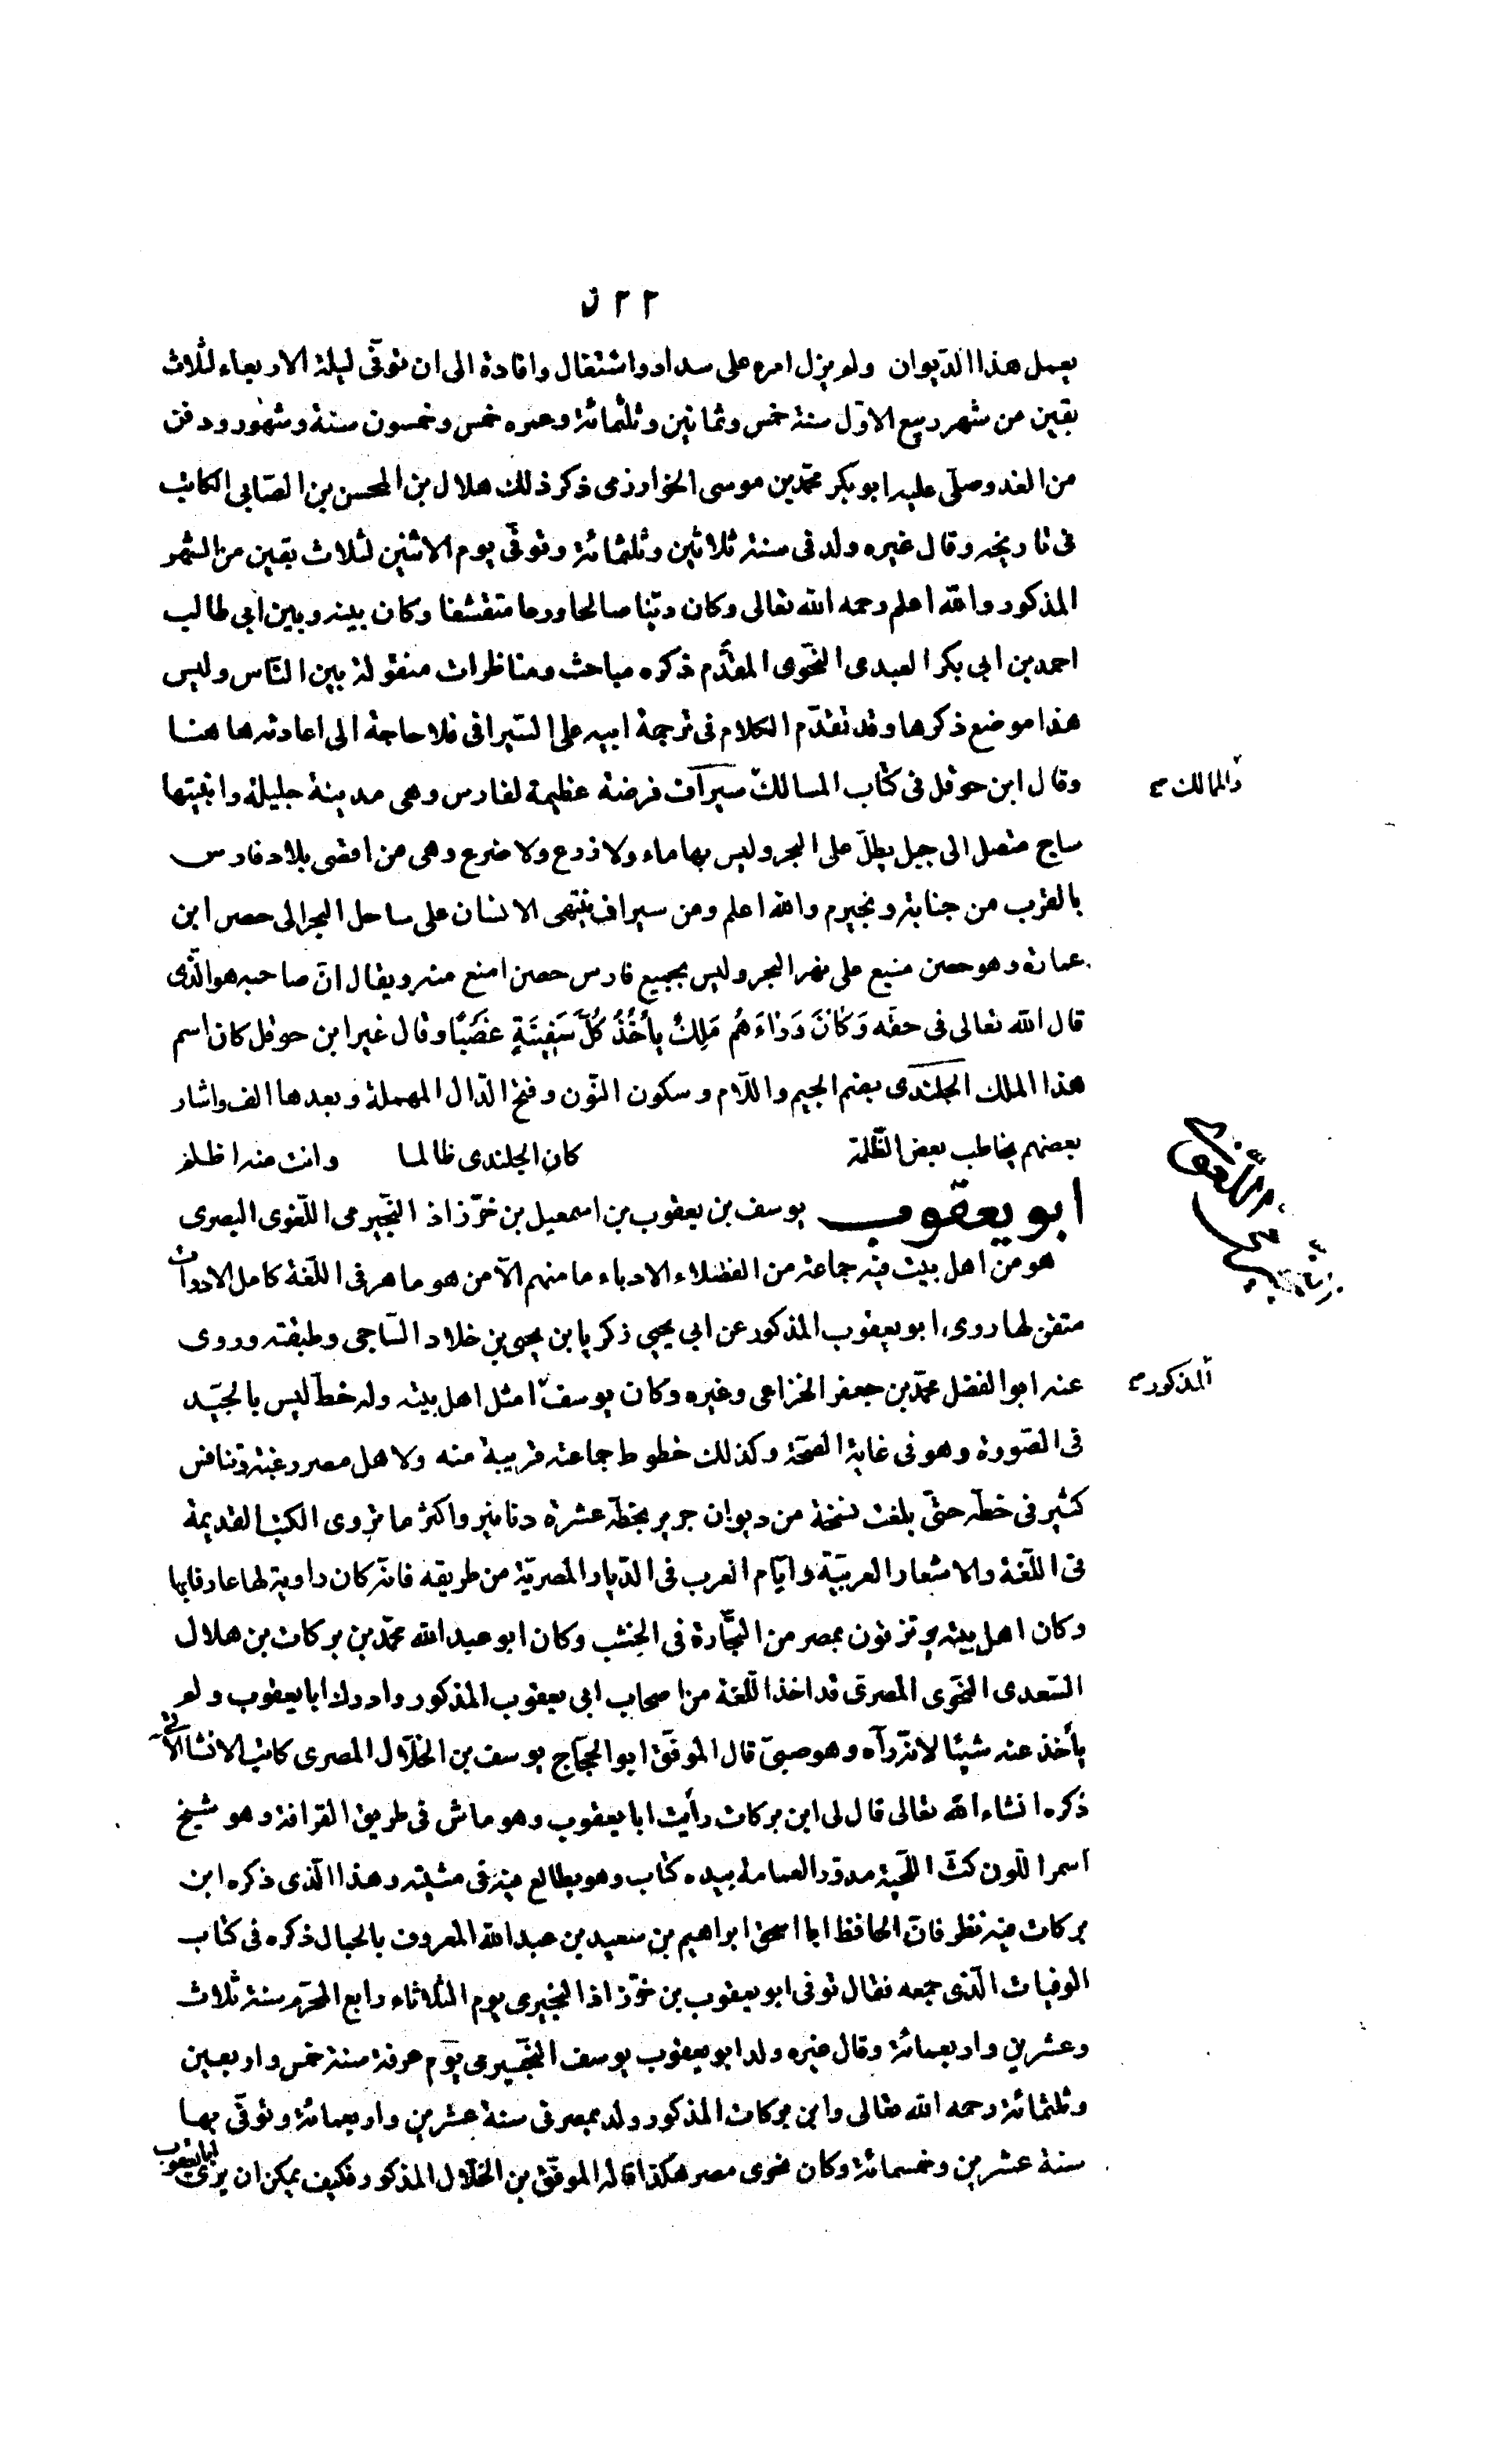 ٥٢٢
يعمل هذا الدّيوان ولم يزل امره على سداد واشتغال وافادة الى ان توفّى ليلة الاربعاء لثلاث
بقين من شهر ربيع الاوّل سنة خمس وثمانين وثلثمائة وعمره خمس وخمسون سنة وشهور ودفن
من الغد وصلّى عليه ابو بكر محمّد بن موسى الخوارزمى ذكر ذلك هلال بن المحسن بن الصّابى الكاتب
فى تاريخه وقال غيره ولد فى سنة ثلاثين وثلثمائة وتوفّى يوم الاثنين لثلاث بقين من الشهر
المذكور والله اعلم رحمه الله تعالى وكان ديّنا صالحا ورعا متقشفا وكان بينه وبين ابى طالب
احمد بن ابى بكر العبدى النّحوى المقدّم ذكره مباحث ومناظرات منقولة بين النّاس وليس
هذا موضع ذكرها وقد تقدّم الكلام فى ترجمة ابيه على السّيرافى فلا حاجة الى اعادته هاهنا
وقال ابن حوقل فى كتاب المسالك سيراف فرضة عظيمة لفارس وهى مدينة جليلة وابنيتها
والممالك صح
ساج متصل الى جبل يطلّ على البحر وليس بها ماء ولا زرع ولا ضرع وهى من اقصى بلاد فارس
بالقرب من جنابة ونجيرم والله اعلم ومن سيراف ينتهى الانسان على ساحل البحر الى حصن ابن
عمارة وهو حصن منيع على نهر البحر وليس بجميع فارس حصن امنع منه ويقال انّ صاحبه هو الّذى
قال الله تعالى فى حقّه وَكَانَ وَرَاءَهُم مَلِكٌ يَأْخُذُ كُلَّ سَفِينَةٍ غَصْبًا وقال غير ابن حوقل كان اسم
هذا الملك الجلندى بضم الجيم واللّام وسكون النّون وفتح الدّال المهملة وبعدها الف واشار
بعضهم يخاطب بعض الظّلمة كان الجلندى ظالما وانت منه اظلم
ابو يعقوب يوسف بن يعقوب بن اسمعيل بن خرّزاذ النّجيرمى اللّغوى البصرى
هو من اهل بيت فيه جماعة من الفضلاء الادباء ما منهم الّا من هو ماهر فى اللّغة كامل الادوات
متقن لها روى ابو يعقوب المذكور عن ابى يحيى زكريا بن يحيى بن خلاد السّاجى وطبقته وروى
عنه ابو الفضل محمّد بن جعفر الخزاعى وغيره وكان يوسف امثل اهل بيته وله خطّ ليس بالجيّد
المذكور صح
فى الصّورة وهو فى غاية الصحّة وكذلك خطوط جماعة قريبة منه ولاهل مصر رغبة وتنافس
كثير فى خطّه حتّى بلغت نسخة من ديوان جرير بخطّه عشرة دنانير واكثر ما تروى الكتب القديمة
فى اللّغة والاشعار العربيّة وايّام العرب فى الدّيار المصريّة من طريقه فانّه كان راوية لها عارفا بها
وكان اهل بيته يرتزقون بمصر من التّجارة فى الخشب وكان ابو عبد الله محمّد بن بركات بن هلال
السّعدى النّحوى المصرى قد اخذ اللّغة من اصحاب ابى يعقوب المذكور وادرك ابا يعقوب ولم
يأخذ عنه شيئا لانّه رآه وهو صبىّ قال الموفّق ابو الحجّاج يوسف بن الخلّال المصرى كاتب الانشا الآتى
ذكره انشاء الله تعالى قال لى ابن بركات رأيت ابا يعقوب وهو ماش فى طريق القرافة وهو شيخ
اسمر اللّون كثّ اللّحية مدوّر العمامة بيده كتاب وهو يطالع فيه فى مشيته وهذا الّذى ذكره ابن
بركات فيه نظر فانّ الحافظ ابا اسحق ابراهيم بن سعيد بن عبد الله المعروف بالحبال ذكره فى كتاب
الوفيات الّذى جمعه فقال توفى ابو يعقوب بن خرّزاذ النجيرمى يوم الثلاثاء رابع المحرّم سنة ثلاث
وعشرين واربعمائة وقال غيره ولد ابو يعقوب يوسف النّجيرمى يوم عرفة سنة خمس واربعين
وثلثمائة رحمه الله تعالى وابن بركات المذكور ولد بمصر فى سنة عشرين واربعمائة وتوفّى بها
سنة عشرين وخمسمائة وكان نحوى مصر هكذا قاله الموفّق بن الخلّال المذكور فكيف يمكن ان يرى ابا يعقوب